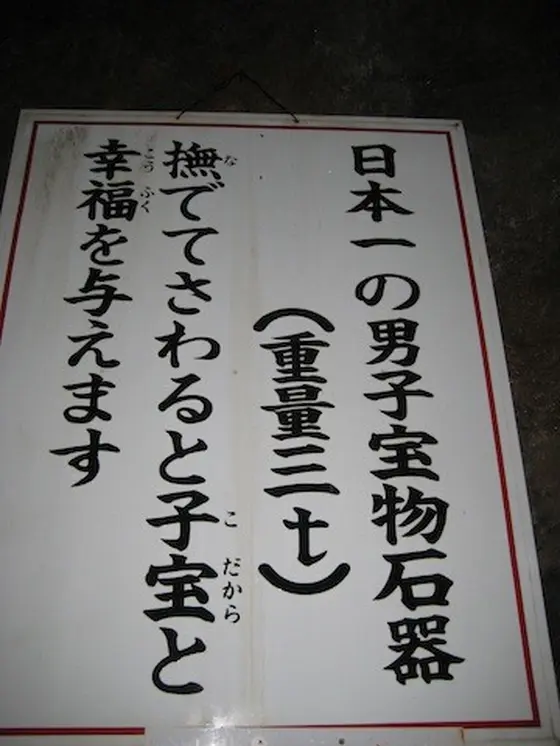 日本一の男子宝物石器
（重量三t）
撫でてさわると子宝と
幸福を与えます
な
こ だから
こう ふく